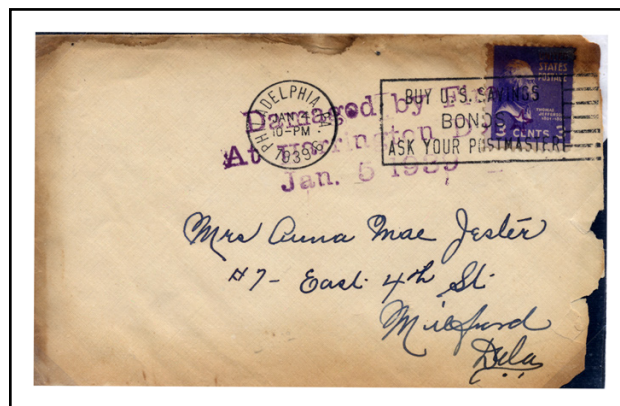 PHILADELPHIA
JAN 4
10-PM
1939
BUY U.S. SAVINGS
BONDS
ASK YOUR POSTMASTER
STATES
POSTAGE
THOMAS
JEFFERSON
3 CENTS 3
Damaged by
At Harrington
Jan. 5 1939
Mrs Anna Mae Jester
#7- East 4th St.
Milford
Dela